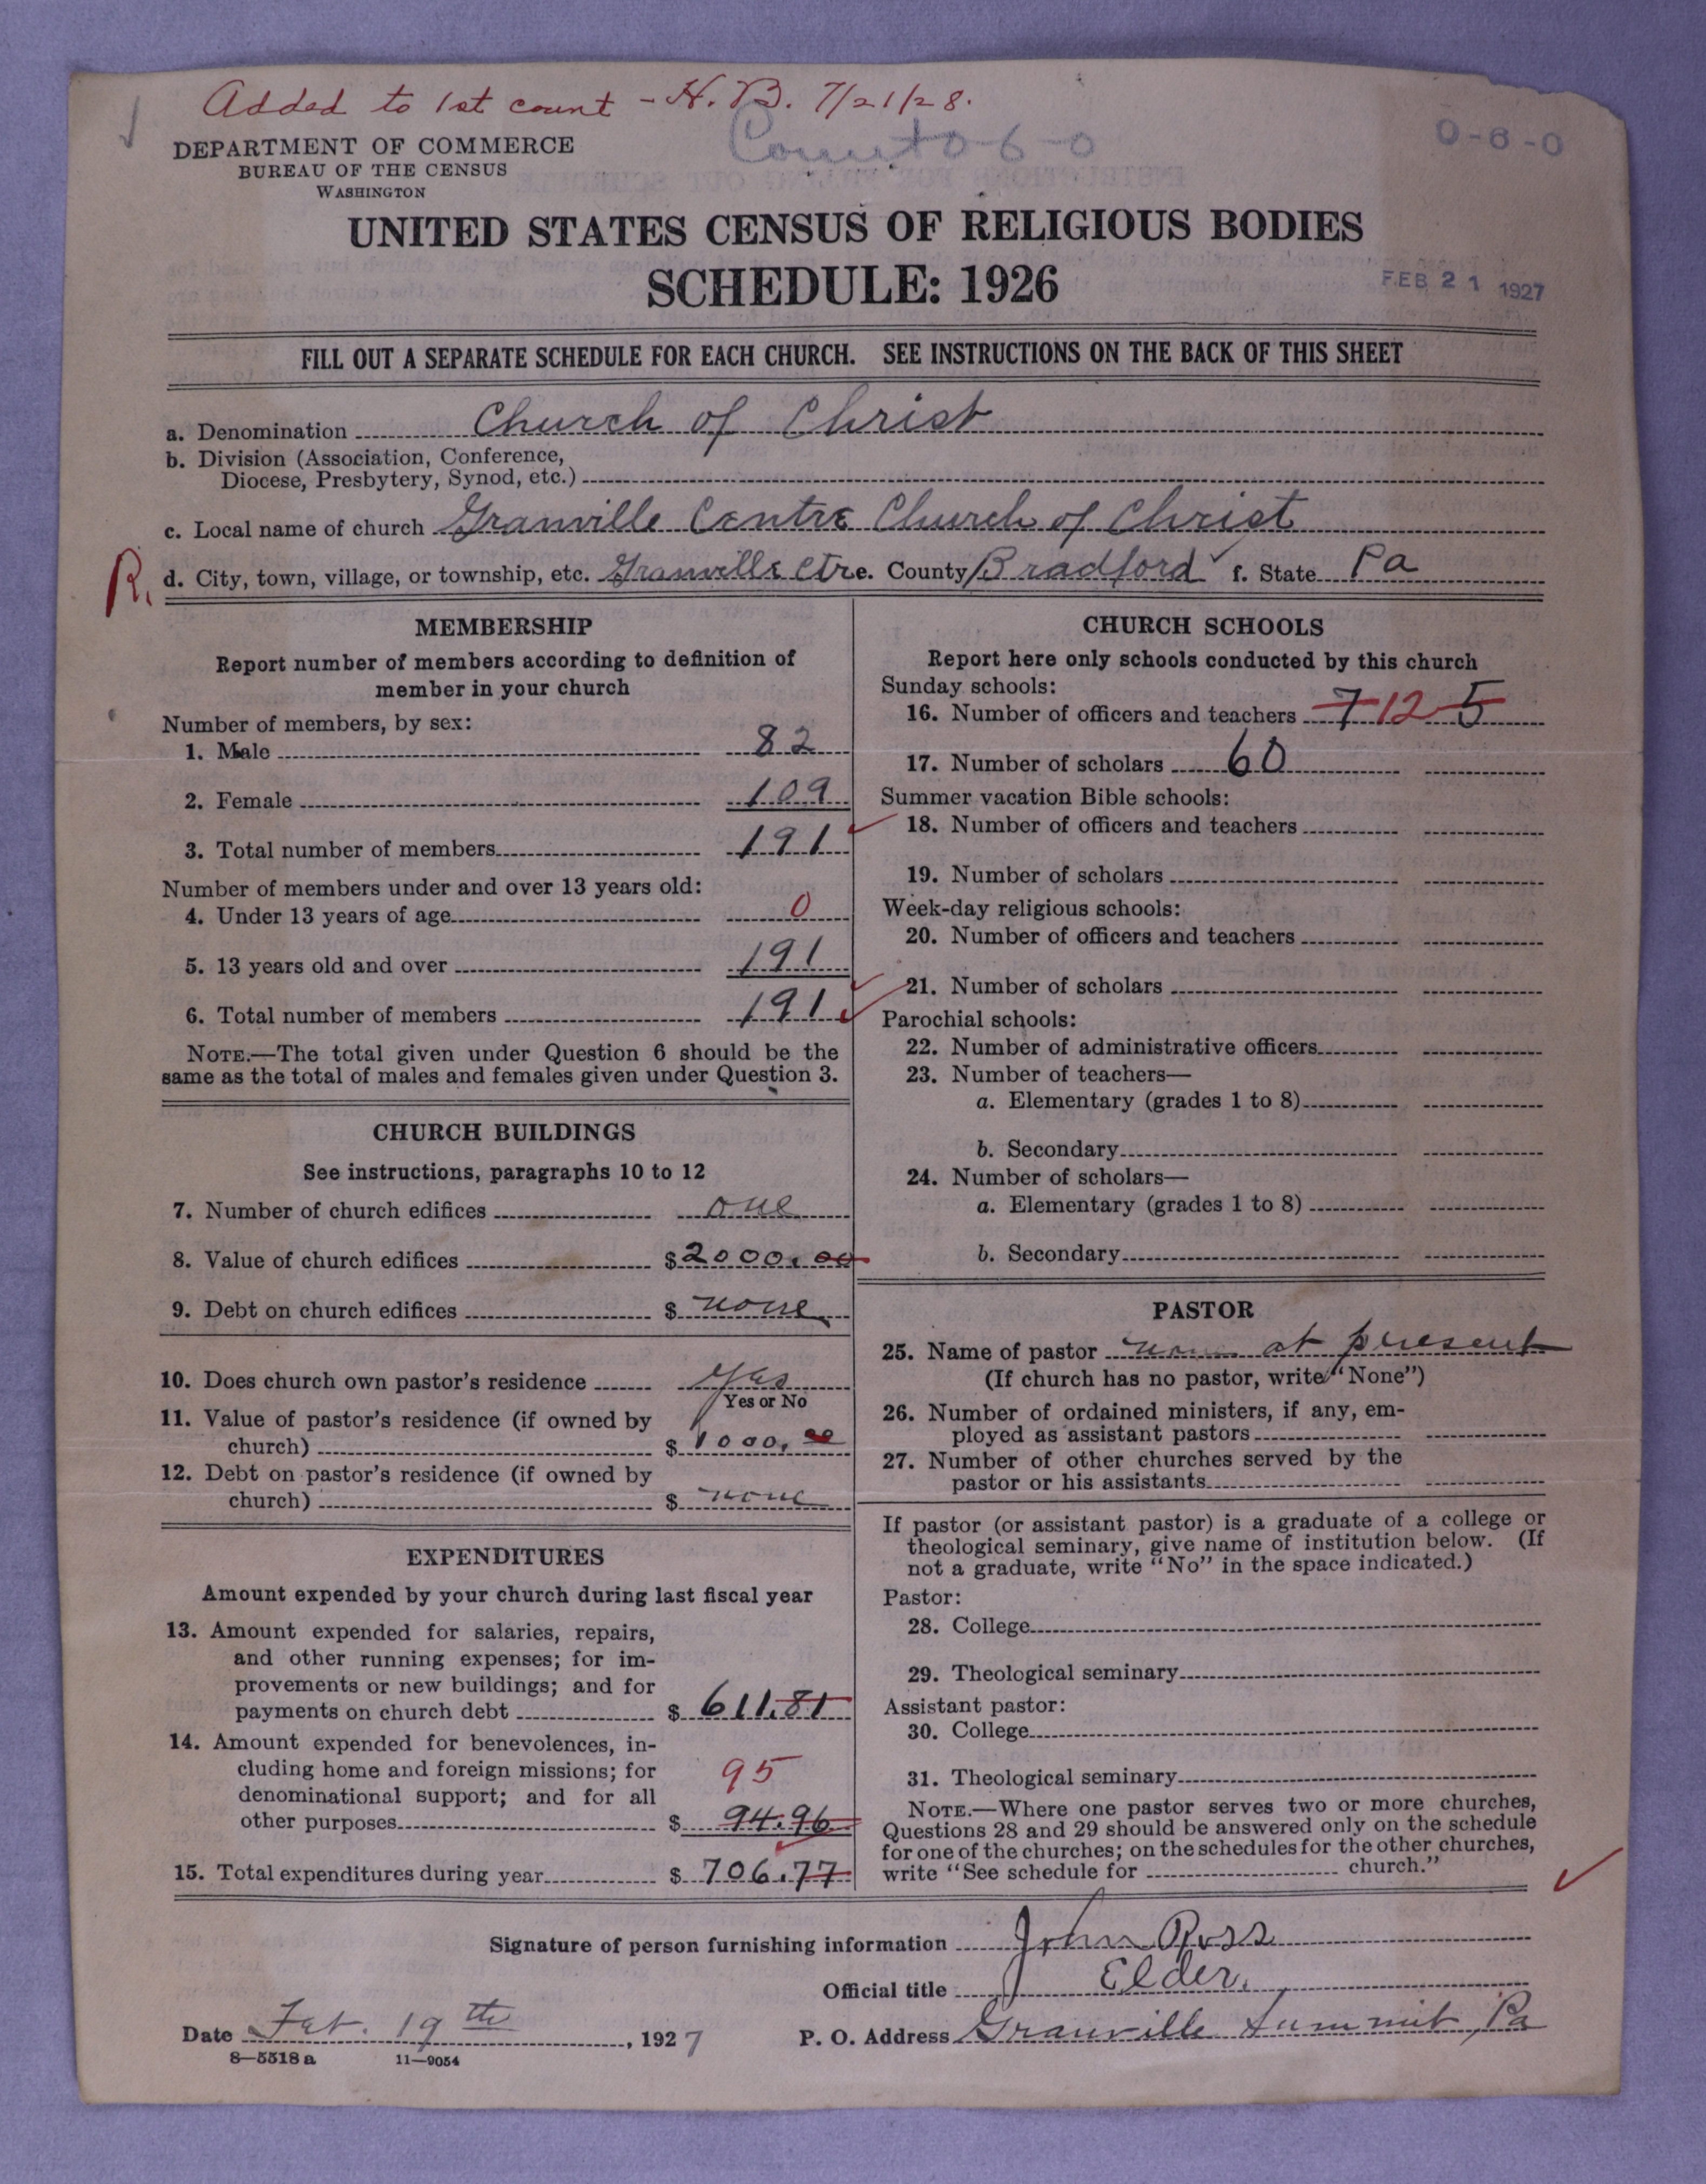 Added to 1st count - H. B. 7/21/28.
0-6-0
0-6-0
DEPARTMENT OF COMMERCE
BUREAU OF THE CENSUS
WASHINGTON
UNITED STATES CENSUS OF RELIGIOUS BODIES
SCHEDULE: 1926
FEB 21 1927
FILL OUT A SEPARATE SCHEDULE FOR EACH CHURCH. SEE INSTRUCTIONS ON THE BACK OF THIS SHEET
a. Denomination Church of Christ
b. Division (Association, Conference,
Diocese, Presbytery, Synod, etc.)
c. Local name of church Granville Centre Church of Christ
R. d. City, town, village, or township, etc. Granville Ctre. County Bradford f. State Pa
MEMBERSHIP
Report number of members according to definition of
member in your church
Number of members, by sex:
1. Male 82
2. Female 109
3. Total number of members 191
Number of members under and over 13 years old:
4. Under 13 years of age 0
5. 13 years old and over 191
6. Total number of members 191
NOTE.—The total given under Question 6 should be the
same as the total of males and females given under Question 3.
CHURCH BUILDINGS
See instructions, paragraphs 10 to 12
7. Number of church edifices one
8. Value of church edifices $2000.00
9. Debt on church edifices $ none
10. Does church own pastor's residence Yes
Yes or No
11. Value of pastor's residence (if owned by
church) $1000.00
12. Debt on pastor's residence (if owned by
church) $ none
EXPENDITURES
Amount expended by your church during last fiscal year
13. Amount expended for salaries, repairs,
and other running expenses; for im-
provements or new buildings; and for
payments on church debt $ 611.81
14. Amount expended for benevolences, in-
cluding home and foreign missions; for 95
denominational support; and for all
other purposes $ 94.96
15. Total expenditures during year $ 706.77
CHURCH SCHOOLS
Report here only schools conducted by this church
Sunday schools:
16. Number of officers and teachers 7 12 5
17. Number of scholars 60
Summer vacation Bible schools:
18. Number of officers and teachers
19. Number of scholars
Week-day religious schools:
20. Number of officers and teachers
21. Number of scholars
Parochial schools:
22. Number of administrative officers
23. Number of teachers—
a. Elementary (grades 1 to 8)
b. Secondary
24. Number of scholars—
a. Elementary (grades 1 to 8)
b. Secondary
PASTOR
25. Name of pastor none at present
(If church has no pastor, write "None")
26. Number of ordained ministers, if any, em-
ployed as assistant pastors
27. Number of other churches served by the
pastor or his assistants
If pastor (or assistant pastor) is a graduate of a college or
theological seminary, give name of institution below. (If
not a graduate, write "No" in the space indicated.)
Pastor:
28. College
29. Theological seminary
Assistant pastor:
30. College
31. Theological seminary
NOTE.—Where one pastor serves two or more churches,
Questions 28 and 29 should be answered only on the schedule
for one of the churches; on the schedules for the other churches,
write "See schedule for church."
Signature of person furnishing information John Ross
Official title Elder.
Date Feb. 19th, 1927 P. O. Address Granville Summit, Pa
8—5518 a 11—9054